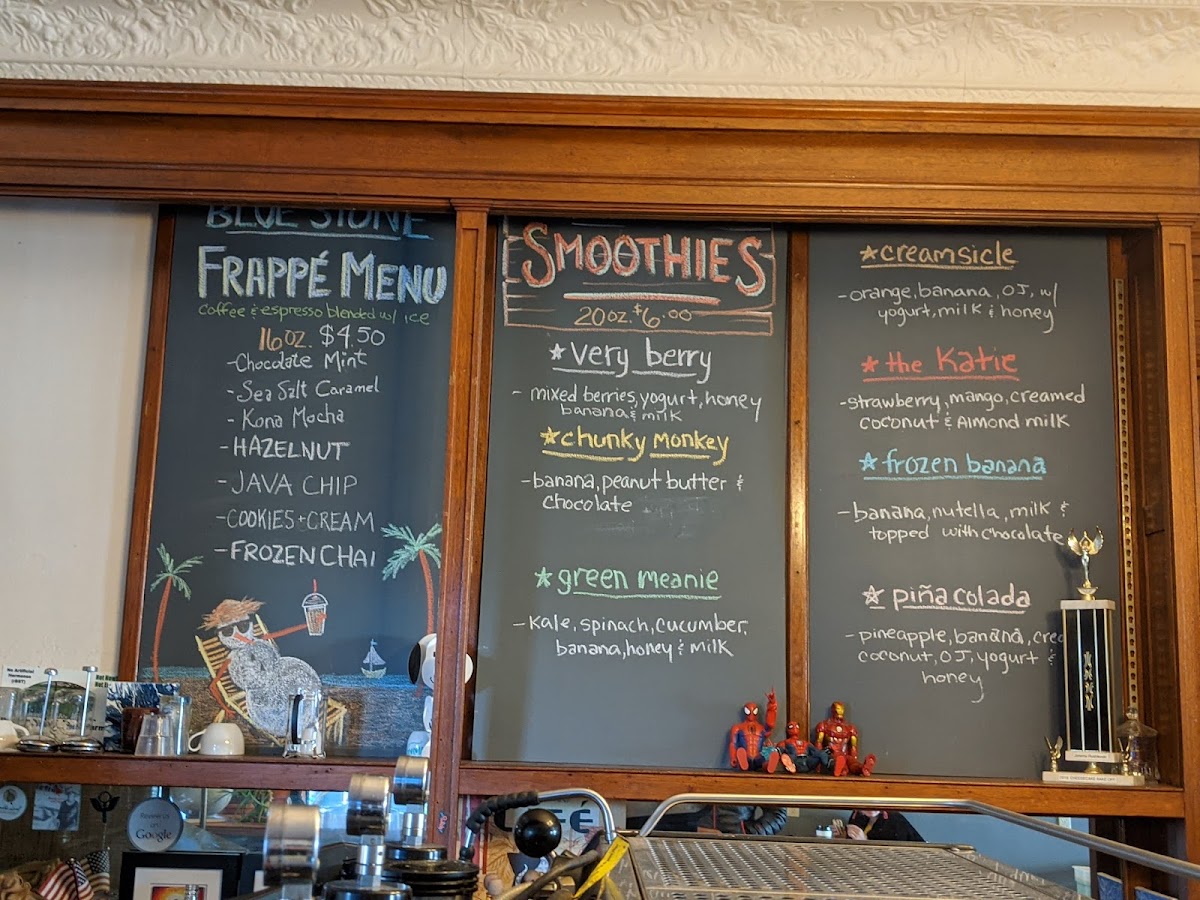 BLUE STONE
FRAPPÉ MENU
coffee & espresso blended w/ ice
16oz. $4.50
-Chocolate Mint
-Sea Salt Caramel
- Kona Mocha
-HAZELNUT
-JAVA CHIP
-COOKIES+CREAM
-FROZEN CHAI
SMOOTHIES
20oz. $6.00
*very berry
- mixed berries, yogurt, honey
banana & milk
*chunky monkey
-banana, peanut butter &
chocolate
*green meanie
-kale, spinach, cucumber,
banana, honey & milk
*creamsicle
-orange, banana, OJ, w/
yogurt, milk & honey
*the Katie
-strawberry, mango, creamed
coconut & Almond milk
*frozen banana
-banana, nutella, milk &
topped with chocolate
*piña colada
-pineapple, banana, crea
coconut, OJ, yogurt &
honey
No Artificial
Hormones
(rBST)
Google
CAFÉ